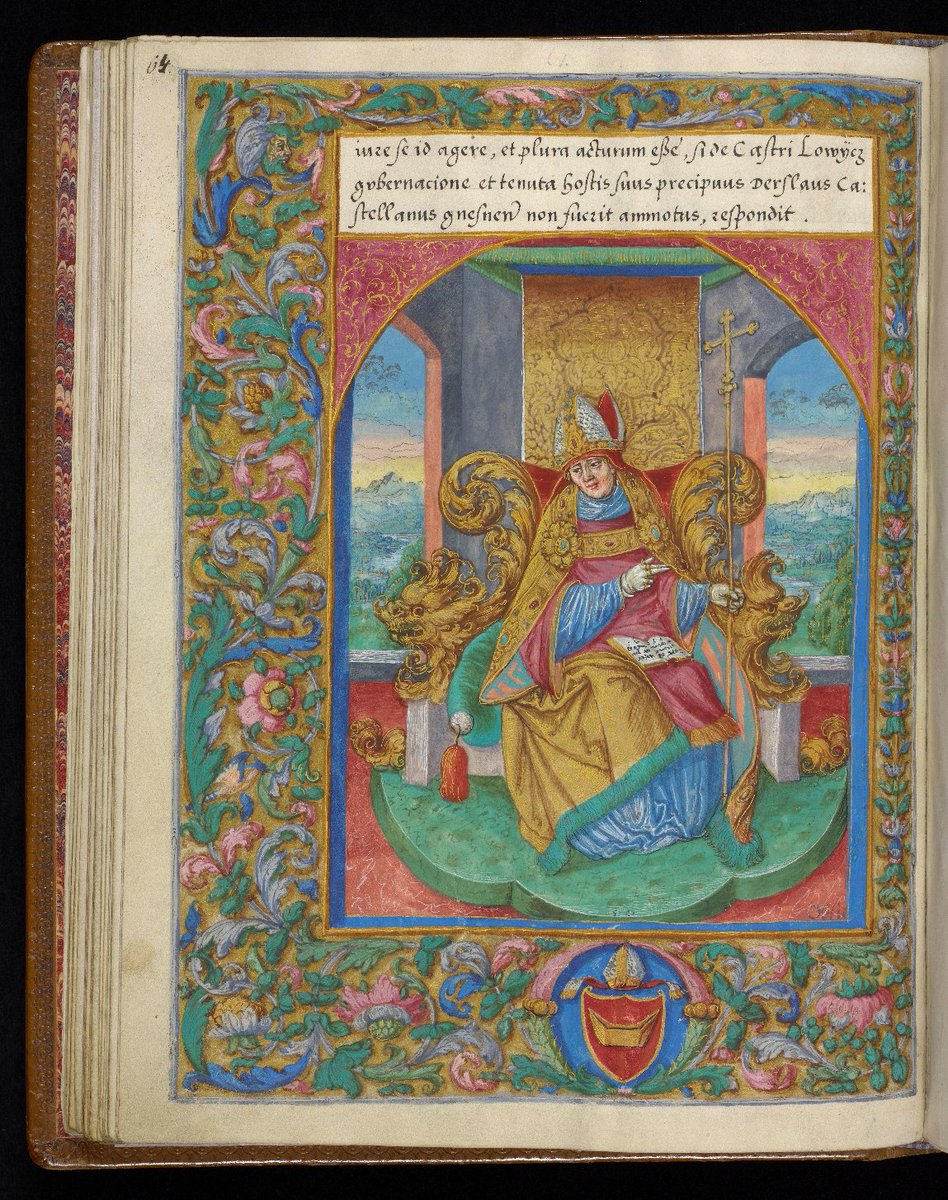 64.
iure se id agere, et plura acturum esse, si de Castri Lowÿcz
gvbernacione et tenuta hostis suus precipuus Derslaus Ca:
stellanus gnesnen̄ non fuerit ammotus, respondit .